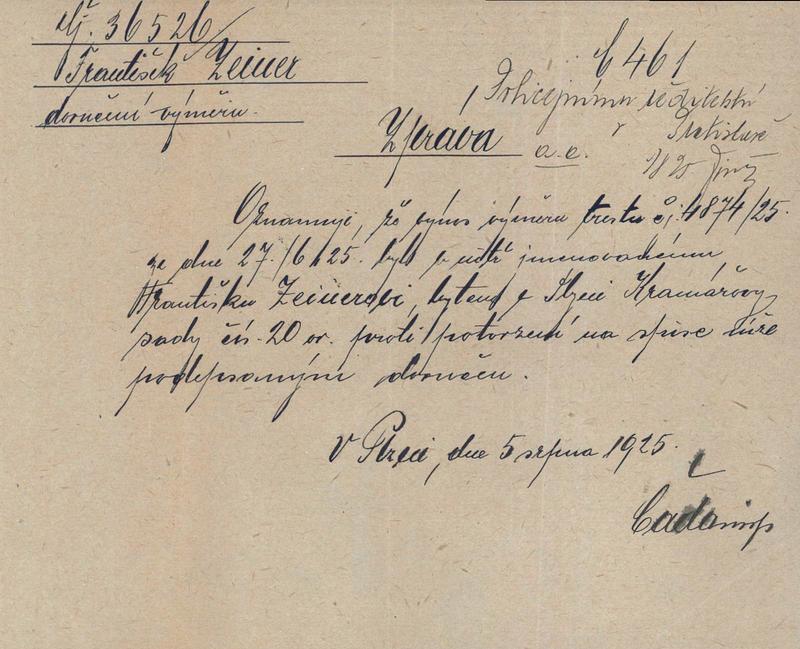 čj. 36526/
František Zeiner
doručení výměru.
C 461
Policejnímu ředitelství
v Bratislavě
Zpráva
a.a.
Oznamuji, že výnos výměru trestu čj. 4874/25.
ze dne 27./6 1925. byl v u jmenovanému
Františku Zeinerovi, bytem v Plzni Kramářovy
sady čís. 20 or. proti potvrzení na spise níže
podepsaným doručen.
V Plzni, dne 5 srpna 1925.